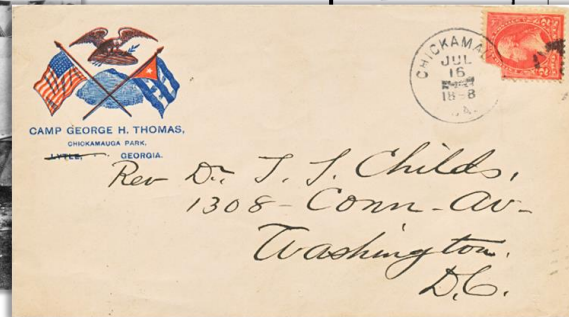 CAMP GEORGE H. THOMAS,
CHICKAMAUGA PARK,
LYTLE, GEORGIA.
CHICKAMA
JUL
16
GA.
Rev Dr. T. S. Childs,
1308 - Conn - Av -
Washington.
D.C.